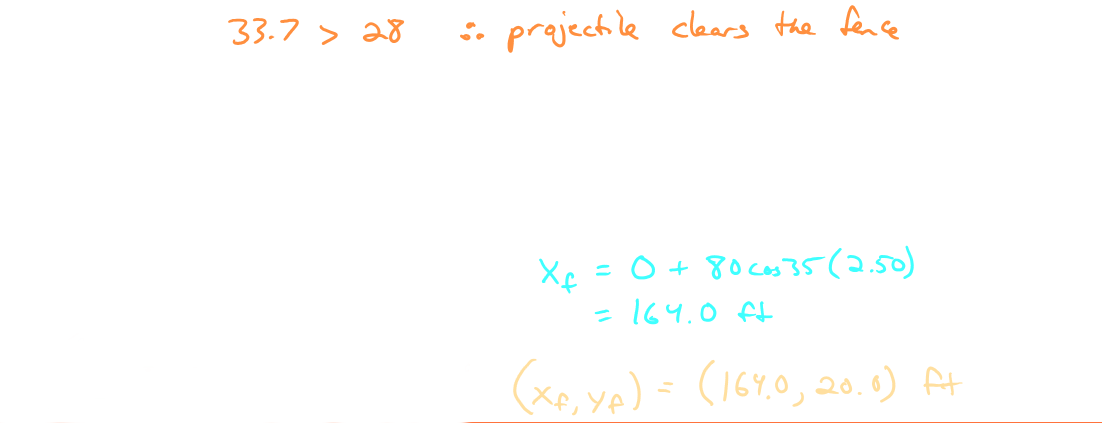 33.7 > 28 ∴ projectile clears the fence
x_f = 0 + 80 cos 35 (2.50)
= 164.0 ft
(x_f, y_f) = (164.0, 20.0) ft